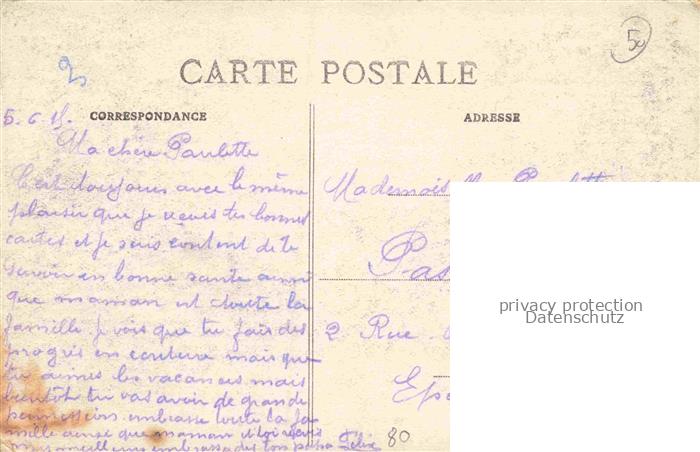 50
2
CARTE POSTALE
CORRESPONDANCE
ADRESSE
5.6.15.
Ma chère Paulette
C'est toujours avec le même
plaisir que je reçois tes bonnes
cartes et je suis content de te
savoir en bonne santé ainsi
que maman et toute la
famille je vois que tu fais des
progrès en couture mais que
tu aimes les vacances mais
bientôt tu vas avoir de grande
permission embrasse toute la fa
mille ainsi que maman et toi reçois
mes meilleurs embrassades ton papa Félix
Mademois
Pas
2 Rue
Epe
80
privacy protection
Datenschutz